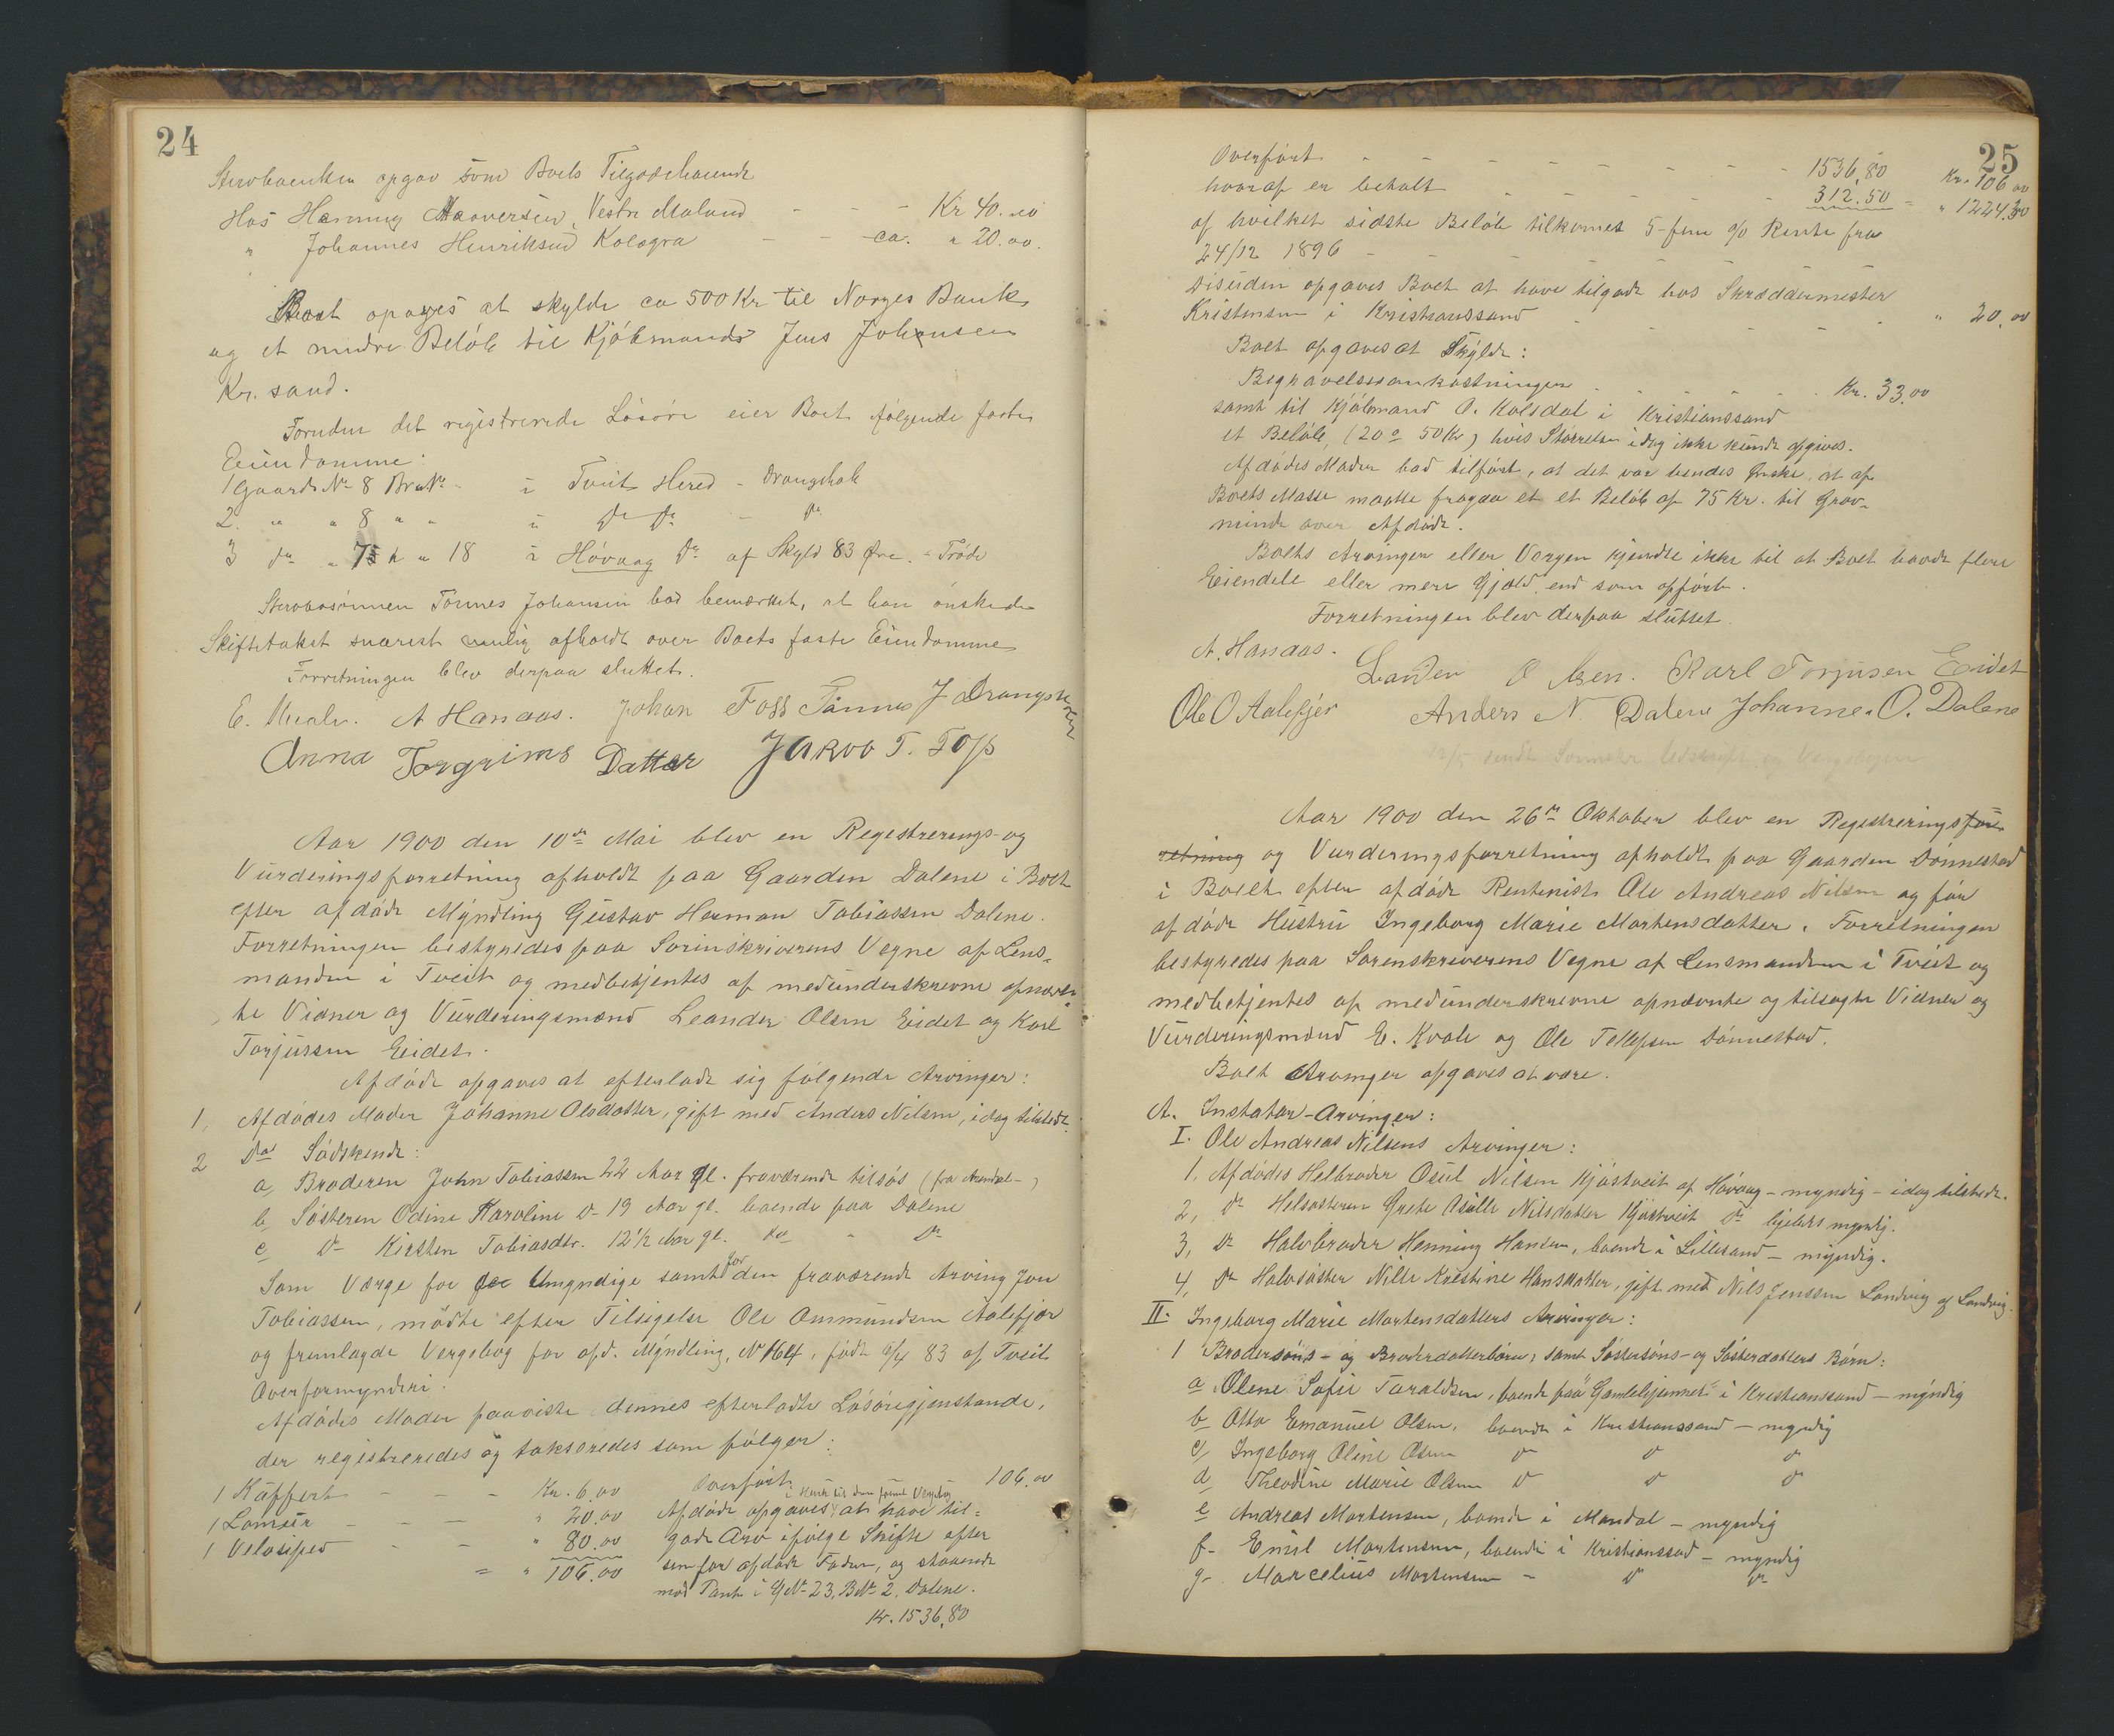 24
Stervboenken opgav som Boets Tilgodehavende
Hos Henning Haaversen, Vestre Moland - - - Kr 40.00
" Johannes Henriksen Kologra - - ca. " 20.00.
Boet opgaves at skylde ca 500 Kr til Norges Bank
og et mindre Beløb til Kjøbmands Jens Johnsen
Kr. sand.
Foruden det registrerede Løsøre eier Boet følgende faste
Eiendomme:
1 Gaards No 8 Br No - i Tveit Hered - Drangsholt
2. " " 8 " " " Do Do - Do
3 do " 75 " " 18 i Høvaag Do af Skyld 83 Øre. - Trøde
Stervbosønnen Tønnes Johansen bad bemærket, at han ønskede
Skiftetakst snarest mulig afholdt over Boets faste Eiendomme
Forretningen blev derpaa sluttet.
E. Kvale. A Hanaas. Johan Foss Tønnes J Drangsholt
Anna Torgrims Datter Jakob T. Foss
Aar 1900 den 10de Mai blev en Regestrerings- og
Vurderingsforretning afholdt paa Gaarden Dalene i Boet
efter afdøde Myndling Gustav Herman Tobiassen Dalene.
Forretningen bestyredes paa Sorinskriverens Vegne af Lens-
manden i Tveit og medbetjentes af medunderskrevne opnævn-
te Vidner og Vurderingsmænd Leander Olsen Eidet og Karl
Torjussen Eidet.
Afdøde opgaves at efterlade sig følgende Arvinger:
1, Afdødes Moder Johanne Olsdatter, gift med Anders Nilsen, idag tilstede.
2 Dos Sødskende:
a, Broderen John Tobiassen 22 Aar gl. fraværende tilsøs (fra Arendal-)
b, Søsteren Odine Karoline Do 19 Aar gl. boende paa Dalene
c, Do Kirsten Tobiasdtr. 12 1/2 Aar gl. do " Do
Som Værge for de Umyndige samt for den fraværende Arving Jon
Tobiassen, mødte efter Tilsigelse Ole Ommundsen Aalefjær
og fremlagde Vergebog for afd. Myndling, No 164, født 1/4 83 af Tveit
Overformynderi.
Afdødes Moder paaviste dennes efterladte Løsøregjenstande,
der registreredes og takseredes som følger:
1 Kuffert - - - Kr. 6.00
1 Lomeur - - - " 20.00
1 Velosiped - - " 80.00
= " 106.00
Overført. 106.00
i Henh til den freml Vergebog
Afdøde opgaves at have til-
gode Arv ifølge Skifte efter
sin før afdøde Fader, og staaende
mod Pant i GNo 23, BNo 2, Dalene.
Kr. 1536,80
25
Overført - - - - - - - 1536,80 Kr. 106.00
hvoraf er betalt - - - - - 312.50 = " 1224.30
af hvilket sidste Beløb tilkomes 5-fem % Rente fra
24/12 1896 - - - - - -
Disuden opgaves Boet at have tilgode hos Skræddermester
Kristensen i Kristianssand - - - - - - " 20.00
Boet opgaves at Skylde:
Begravelsesomkostninger - - - - - Kr. 33.00
samt til Kjøbmand O. Kalsdal i Kristianssand
et Beløb, (20 a 50 Kr) hvis Størrelse idag ikke kunde opgives.
Afdødes Moder bad tilført, at det var hendes Ønske, at af
Boets Masse maatte fragaa et et Beløb af 75 Kr. til Grav-
minde over Afdøde.
Boets Arvinger eller Vergen kjendte ikke til at Boet havde flere
Eiendele eller mere Gjæld, end som opført.
Forretningen blev derpaa sluttet.
A. Hanaas. Leander Olsen. Karl Torjusen Eidet
Ole O Aalefjær Anders N. Dalene Johanne. O. Dalene
Aar 1900 den 26de Oktober blev en Registreringsfor-
retning og Vurderingsforretning afholdt paa Gaarden Dønnestad
i Boet efter afdøde Rentenist Ole Andreas Nilsen og før
afdøde Hustru Ingeborg Marie Mortensdatter. Forretningen
bestyredes paa Sorenskriverens Vegne af Lensmanden i Tveit og
medbetjentes af medunderskrevne opnævnte og tilsagte Vidner og
Vurderingsmænd E. Kvale og Ole Tellefsen Dønnestad.
Boets Arvinger opgaves at være.
A. Instatar-Arvinger:
I. Ole Andreas Nilsens Arvinger:
1, Afdødes Helbroder Osuld Nilsen Kjøstveit af Høvaag - myndig - idag tilstede.
2, Do Helsøsteren Grete Asille Nilsdatter Kjøstveit Do ligeledes myndig.
3, Do Halvbroder Henning Hansen, boende i Lillesand - myndig.
4, Do Halvsøster Nille Kristine Hansdatter, gift med Nils Jenssen Landvig af Landvig.
II. Ingeborg Marie Mortensdatters Arvinger:
1 Brodersøns- og Broderdatterbørn; samt Søstersøns- og Søsterdatters Børn:
a, Olene Sofie Taraldsen, boende paa "Gamlehjemmet" i Kristianssand - myndig
b Otto Emanuel Olsen, boende i Kristianssand - myndig
c, Ingeborg Oline Olsen Do Do Do
d, Theodine Marie Olsen Do Do Do
e Andreas Mortensen, boende i Mandal - myndig
f- Emil Mortensen, boende i Kristianssad - myndig
g- Marcelius Mortensen - Do Do